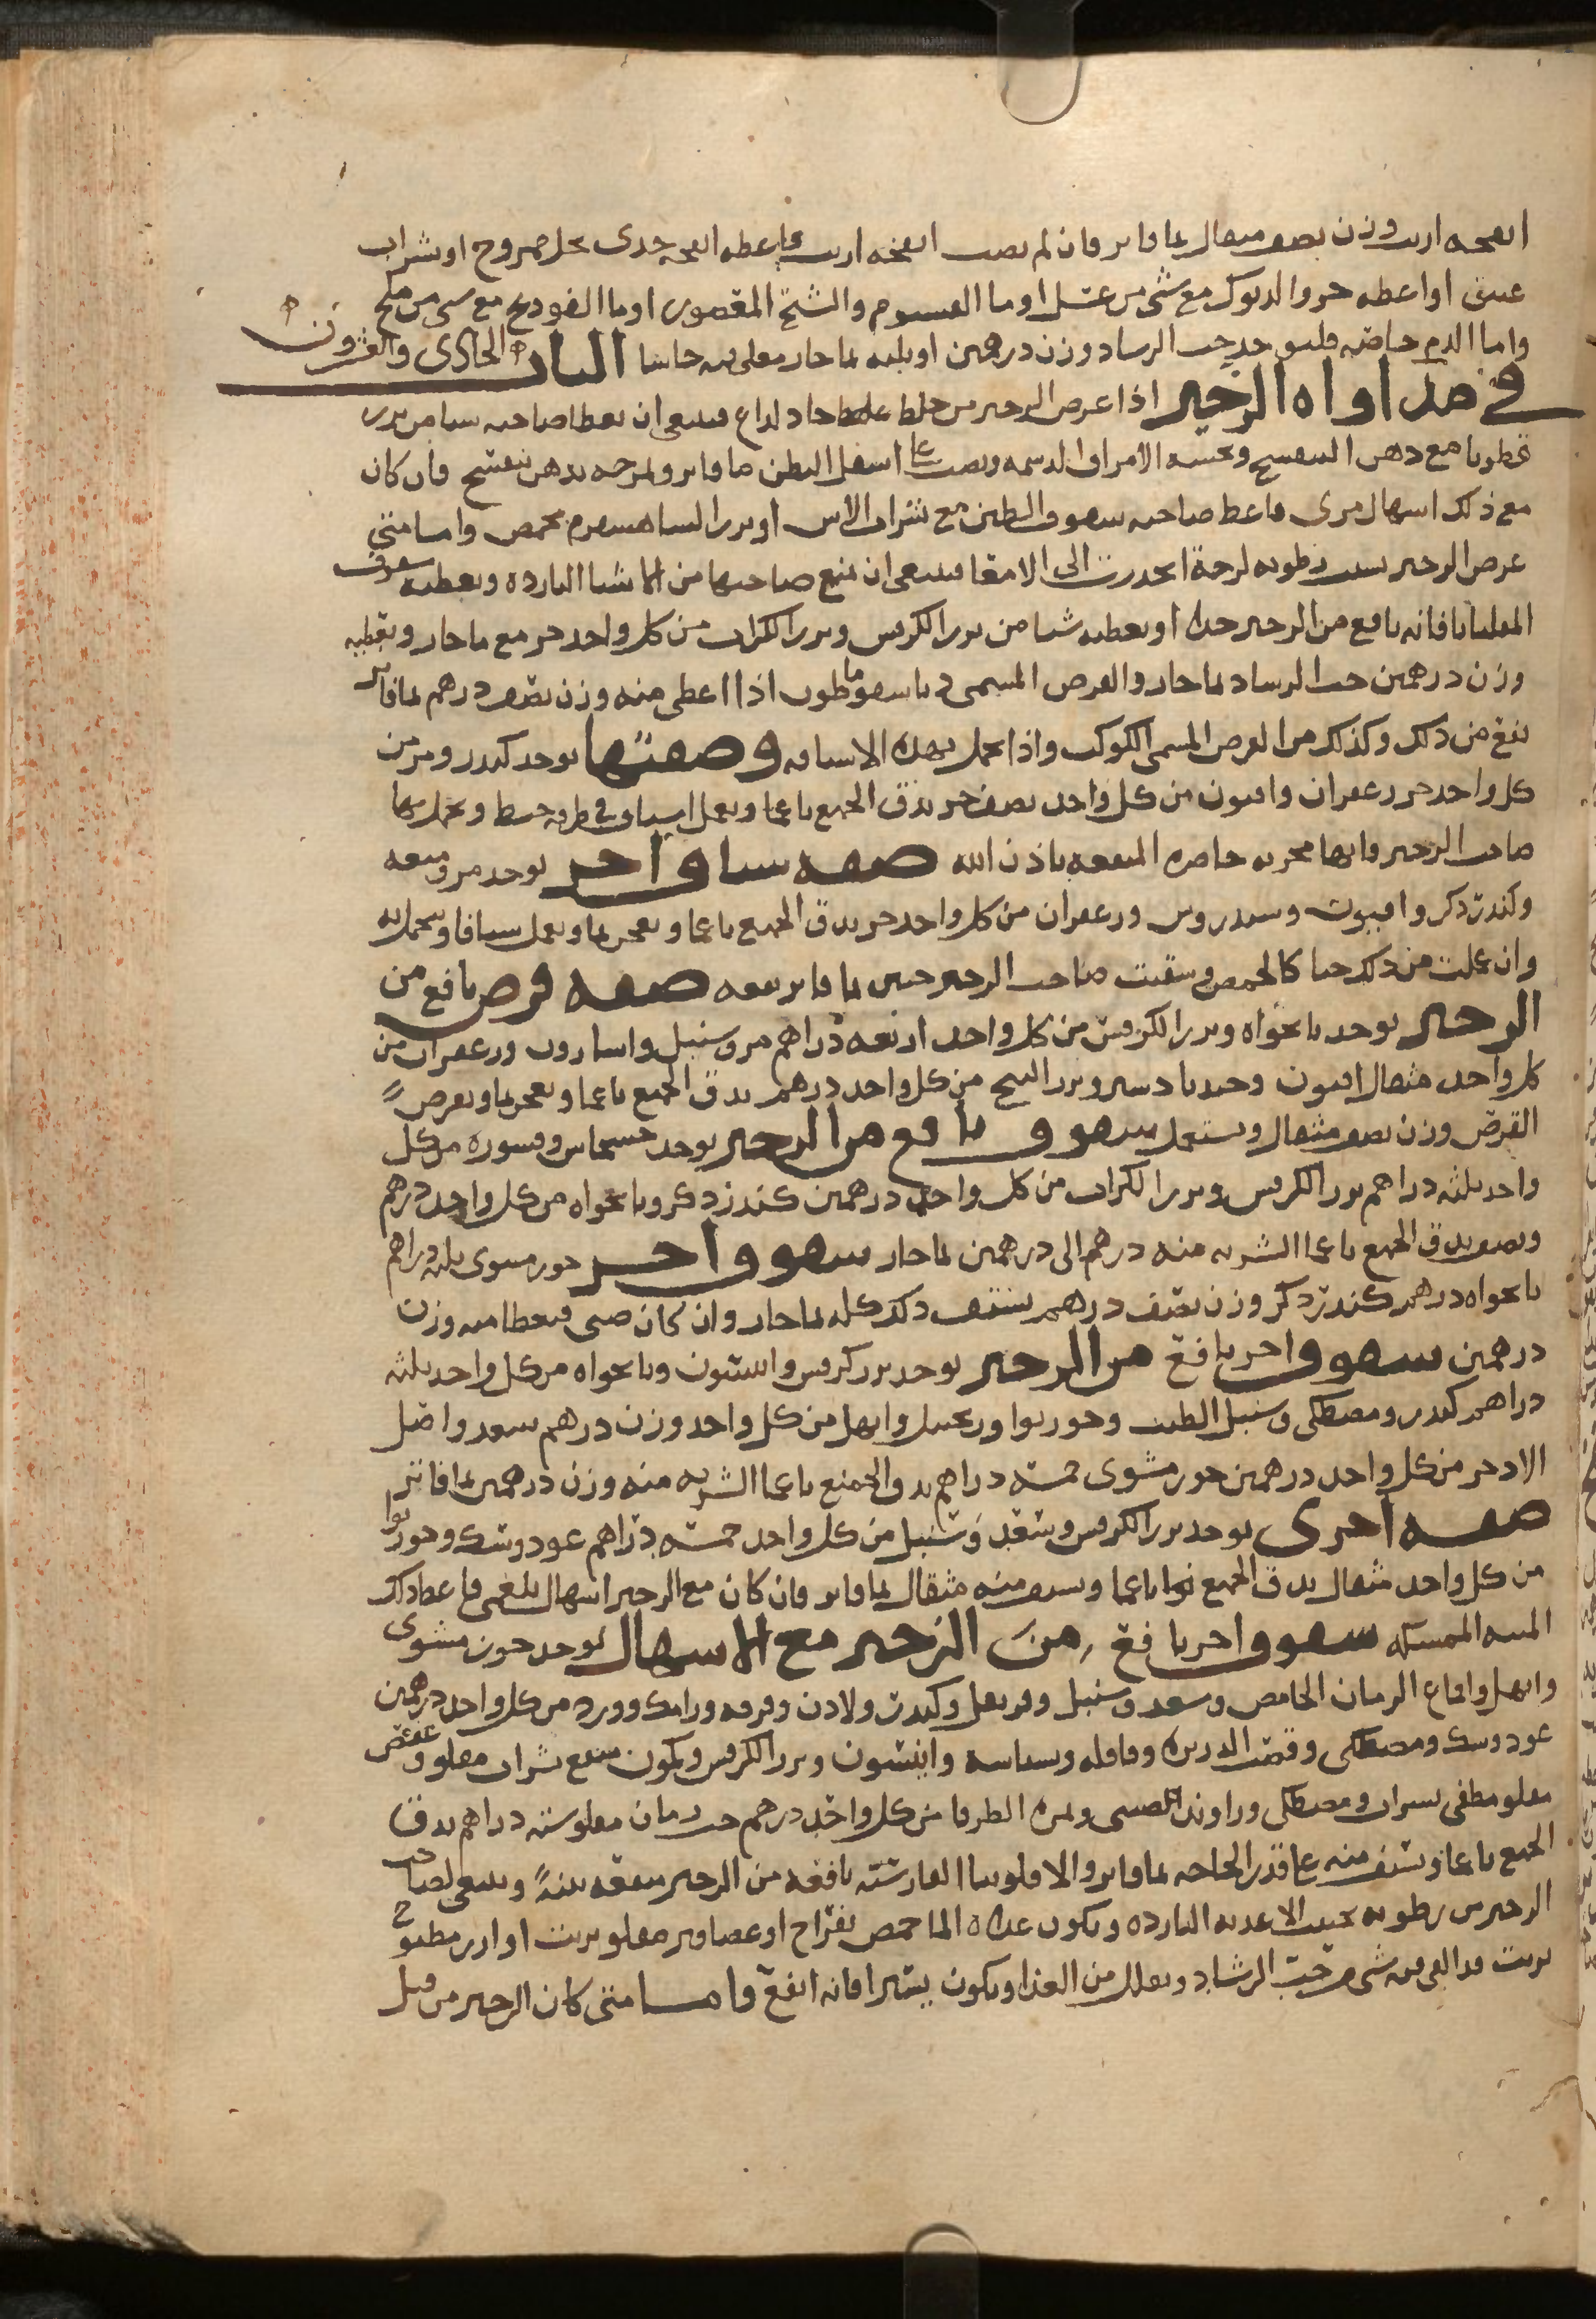 انفحه ارنب وزن نصف مثقال بما فاتر فان لم يصب انفحه ارنب فاعطه انفحه جدى بخل ممزوج او شراب
عتيق او اعطه خرو الديوك مع شى من عسل او ما القيسوم والشيح المعصور او ما الفودنج مع شى من ملح
واما الدم خاصه فليوخذ حب الرشاد وزن درهمين او ثلثه بما حار مغلى فيه حاشا الباب الحادى والعشرون
فى مداواه الزحير اذا عرض الزحير من خلط غليظ حاد لداع فينبغى ان يعطا صاحبه شيا من بزر
قطونا مع دهن البنفسج وتحسيه الامراق الدسمه ويصب على اسفل البطن ما فاتر وتمرخه بدهن بنفسج فان كان
مع ذلك اسهال مرى فاعط صاحبه سفوف الطين مع شراب الاس او بزر الساهسفرم محمص واما متى
عرض الزحير بسبب رطوبه لزجة انحدرت الى الامعا فينبغى ان تمنع صاحبها من الاشيا البارده وتعطيه سفوف
المقلياثا فانه نافع من الزحير جدا او تعطيه شيا من بزر الكرفس وبزر الكراث من كل واحد جز مع ما حار وتعطيه
وزن درهمين حب الرشاد بما حار والقرص المسمى دياسفوماطون اذا اعطى منه وزن نصف درهم بما فاتر
نفع من ذلك وكذلك من القرص المسمى الكوكب واذا تحمل بهذه الاشيافه وصفتها يوخذ كندر ومر من
كل واحد جز زعفران وافيون من كل واحد نصف جز يدق الجميع ناعما ويعمل اشياف فى طرفه خيط ويتحمل بها
صاحب الزحير فانها مجربه حاضره المنفعه باذن الله صفه شياف اخر يوخذ مر وميعه
وكندر ذكر وافيون وسندروس وزعفران من كل واحد جز يدق الجميع ناعما ويعجن بما ويعمل شيافا ويتحمل به
وان عملت من ذلك حبا كالحمص وسقيت صاحب الزحير حبتين بما فاتر نفعه صفه قرص نافع من
الزحير يوخذ نانخواه وبزر الكرفس من كل واحد اربعه دراهم مر وسنبل واسارون وزعفران من
كل واحد مثقال افيون وجندبادستر وبزر البنج من كل واحد درهم يدق الجميع ناعما ويعجن بما ويقرص
القرص وزن نصف مثقال ويستعمل سفوف نافع من الزحير يوخذ خشخاش وقشوره من كل
واحد ثلثه دراهم بزر الكرفس وبزر الكراث من كل واحد درهمين كندر ذكر ونانخواه من كل واحد درهم
ونصف يدق الجميع ناعما الشربه منه درهم الى درهمين بما حار سفوف اخر جوز مشوى ثلثه دراهم
نانخواه درهم كندر ذكر وزن نصف درهم يستف ذلك كله بما حار وان كان صبى فيعطا منه وزن
درهمين سفوف اخر نافع من الزحير يوخذ بزر كرفس وانيسون ونانخواه من كل واحد ثلثه
دراهم كندر ومصطكى وسنبل الطيب وجوزبوا وزنجبيل وابهل من كل واحد وزن درهم سعد واصل
الاذخر من كل واحد درهمين جوز مشوى خمسه دراهم يدق الجميع ناعما الشربه منه وزن درهمين بما فاتر
صفه اخرى يوخذ بزر الكرفس وسعد وسنبل من كل واحد خمسه دراهم عود وسك وجوزبوا
من كل واحد مثقال يدق الجميع ناعما ويسف منه مثقال بما فاتر فان كان مع الزحير اسهال بلغمى فاعط ذلك
الميبه الممسكه سفوف اخر نافع من الزحير مع الاسهال يوخذ جوز مشوى
وابهل واقماع الرمان الحامض وسعد وسنبل وقرنفل وكندر ولادن وقرفه ورامك وورد من كل واحد درهمين
عود وسك ومصطكى وقصب الذريره وقاقله وبسباسه وانيسون وبزر الكرفس وكمون منقع بشراب مقلو وعفص
مقلو مطفى بشراب ومصطكى وراوند صينى وثمره الطرفا من كل واحد درهم حب رمان مقلو سته دراهم يدق
الجميع ناعما ويستف منه على قدر الحاجه بما فاتر والافلونيا الفارسيه نافعه من الزحير منفعه بينة وينبغى لصاحب
الزحير من رطوبه تجنب الاغذيه البارده ويكون غداه الما حمص بفراخ او عصافير مقلو بزيت او ارز مطبوخ
بزيت قد القى فيه شى من حب الرشاد وتقلل من الغذا ويكون يسيرا فانه انفع واما متى كان الزحير من قبل